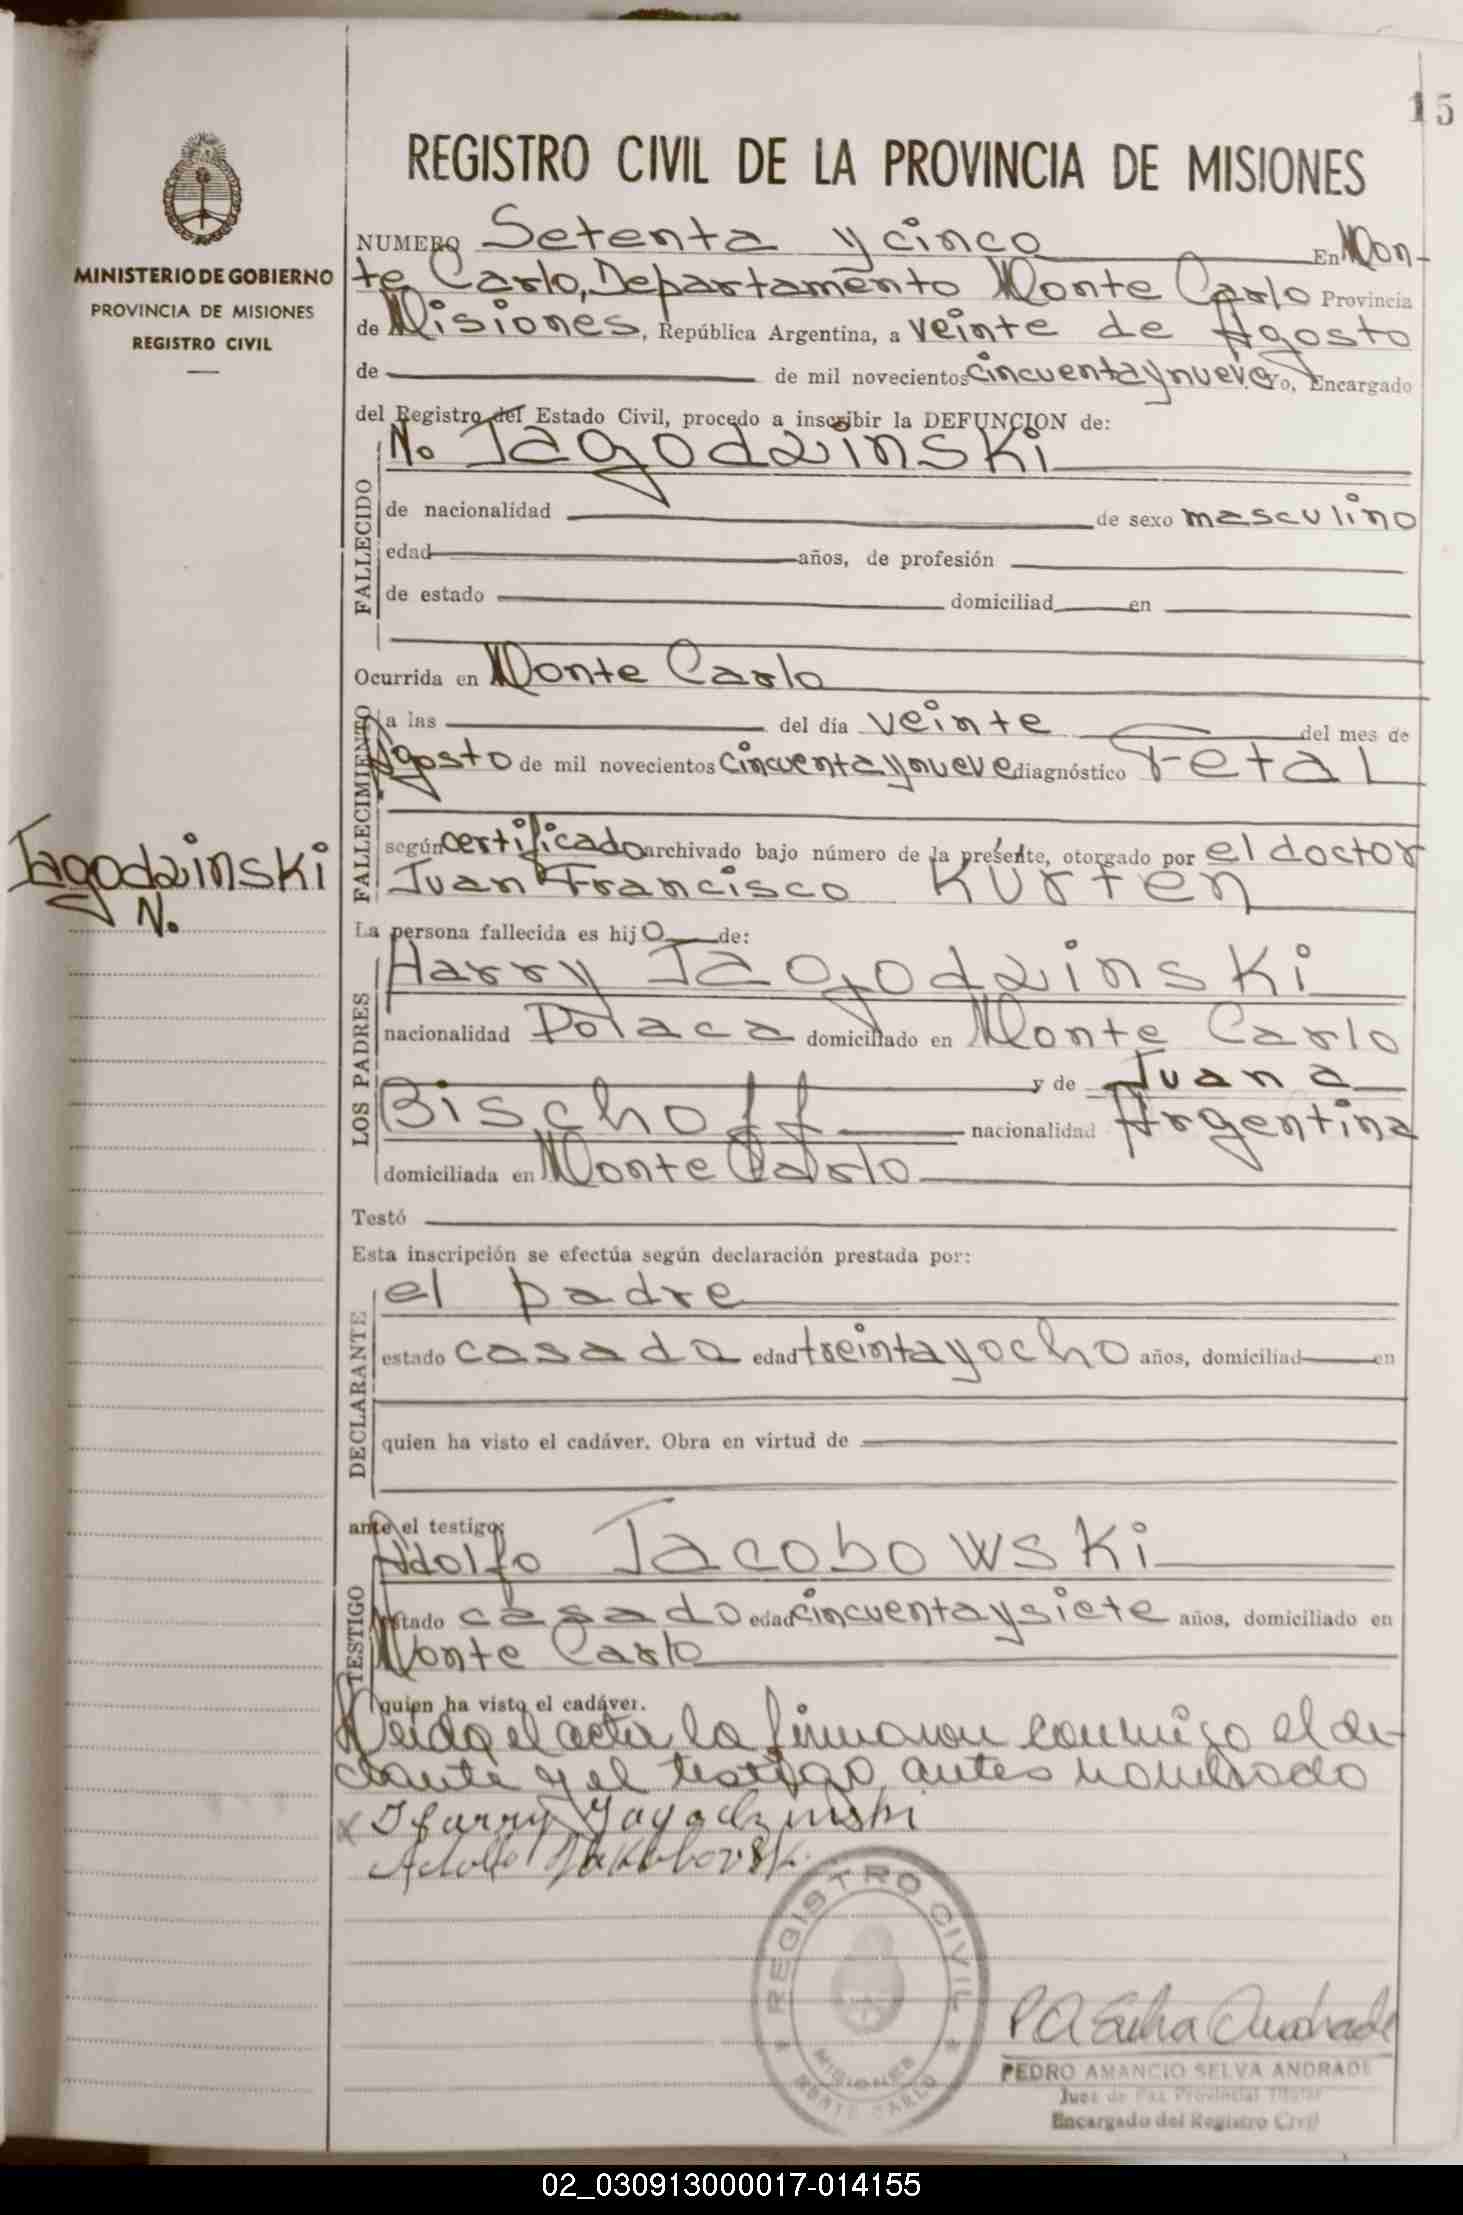 15
MINISTERIO DE GOBIERNO
PROVINCIA DE MISIONES
REGISTRO CIVIL
REGISTRO CIVIL DE LA PROVINCIA DE MISIONES
NUMERO Setenta y cinco En Mon-
te Carlo, Departamento Monte Carlo Provincia
de Misiones, República Argentina, a veinte de Agosto
de de mil novecientos cincuentaynueve Yo, Encargado
del Registro del Estado Civil, procedo a inscribir la DEFUNCION de:
N. Jagodzinski
FALLECIDO
de nacionalidad de sexo masculino
edad años, de profesión
de estado domiciliad en
Ocurrida en Monte Carlo
FALLECIMIENTO
a las del día veinte del mes de
Agosto de mil novecientos cincuentaynueve diagnóstico Fetal
Jagodzinski
N.
según certificado archivado bajo número de la presente, otorgado por el doctor
Juan Francisco Kurten
La persona fallecida es hijo de:
LOS PADRES
Harry Jagodzinski
nacionalidad Polaca domiciliado en Monte Carlo
y de Juana
Bischoff nacionalidad Argentina
domiciliada en Monte Carlo
Testó
Esta inscripción se efectúa según declaración prestada por:
DECLARANTE
el padre
estado casado edad treintayocho años, domiciliad en
quien ha visto el cadáver. Obra en virtud de
ante el testigo:
TESTIGO
Adolfo Jacobowski
estado casado edad cincuentaysiete años, domiciliado en
Monte Carlo
quien ha visto el cadáver.
Leida el acta la firmaron conmigo el de-
clante y el testigo antes nombrado
x Harry Jagodzinski
Adolfo Jakubowski
REGISTRO CIVIL
MISIONES
MONTE CARLO
P A Selva Andrade
PEDRO AMANCIO SELVA ANDRADE
Juez de Paz Provincial Titular
Encargado del Registro Civil
02_030913000017-014155